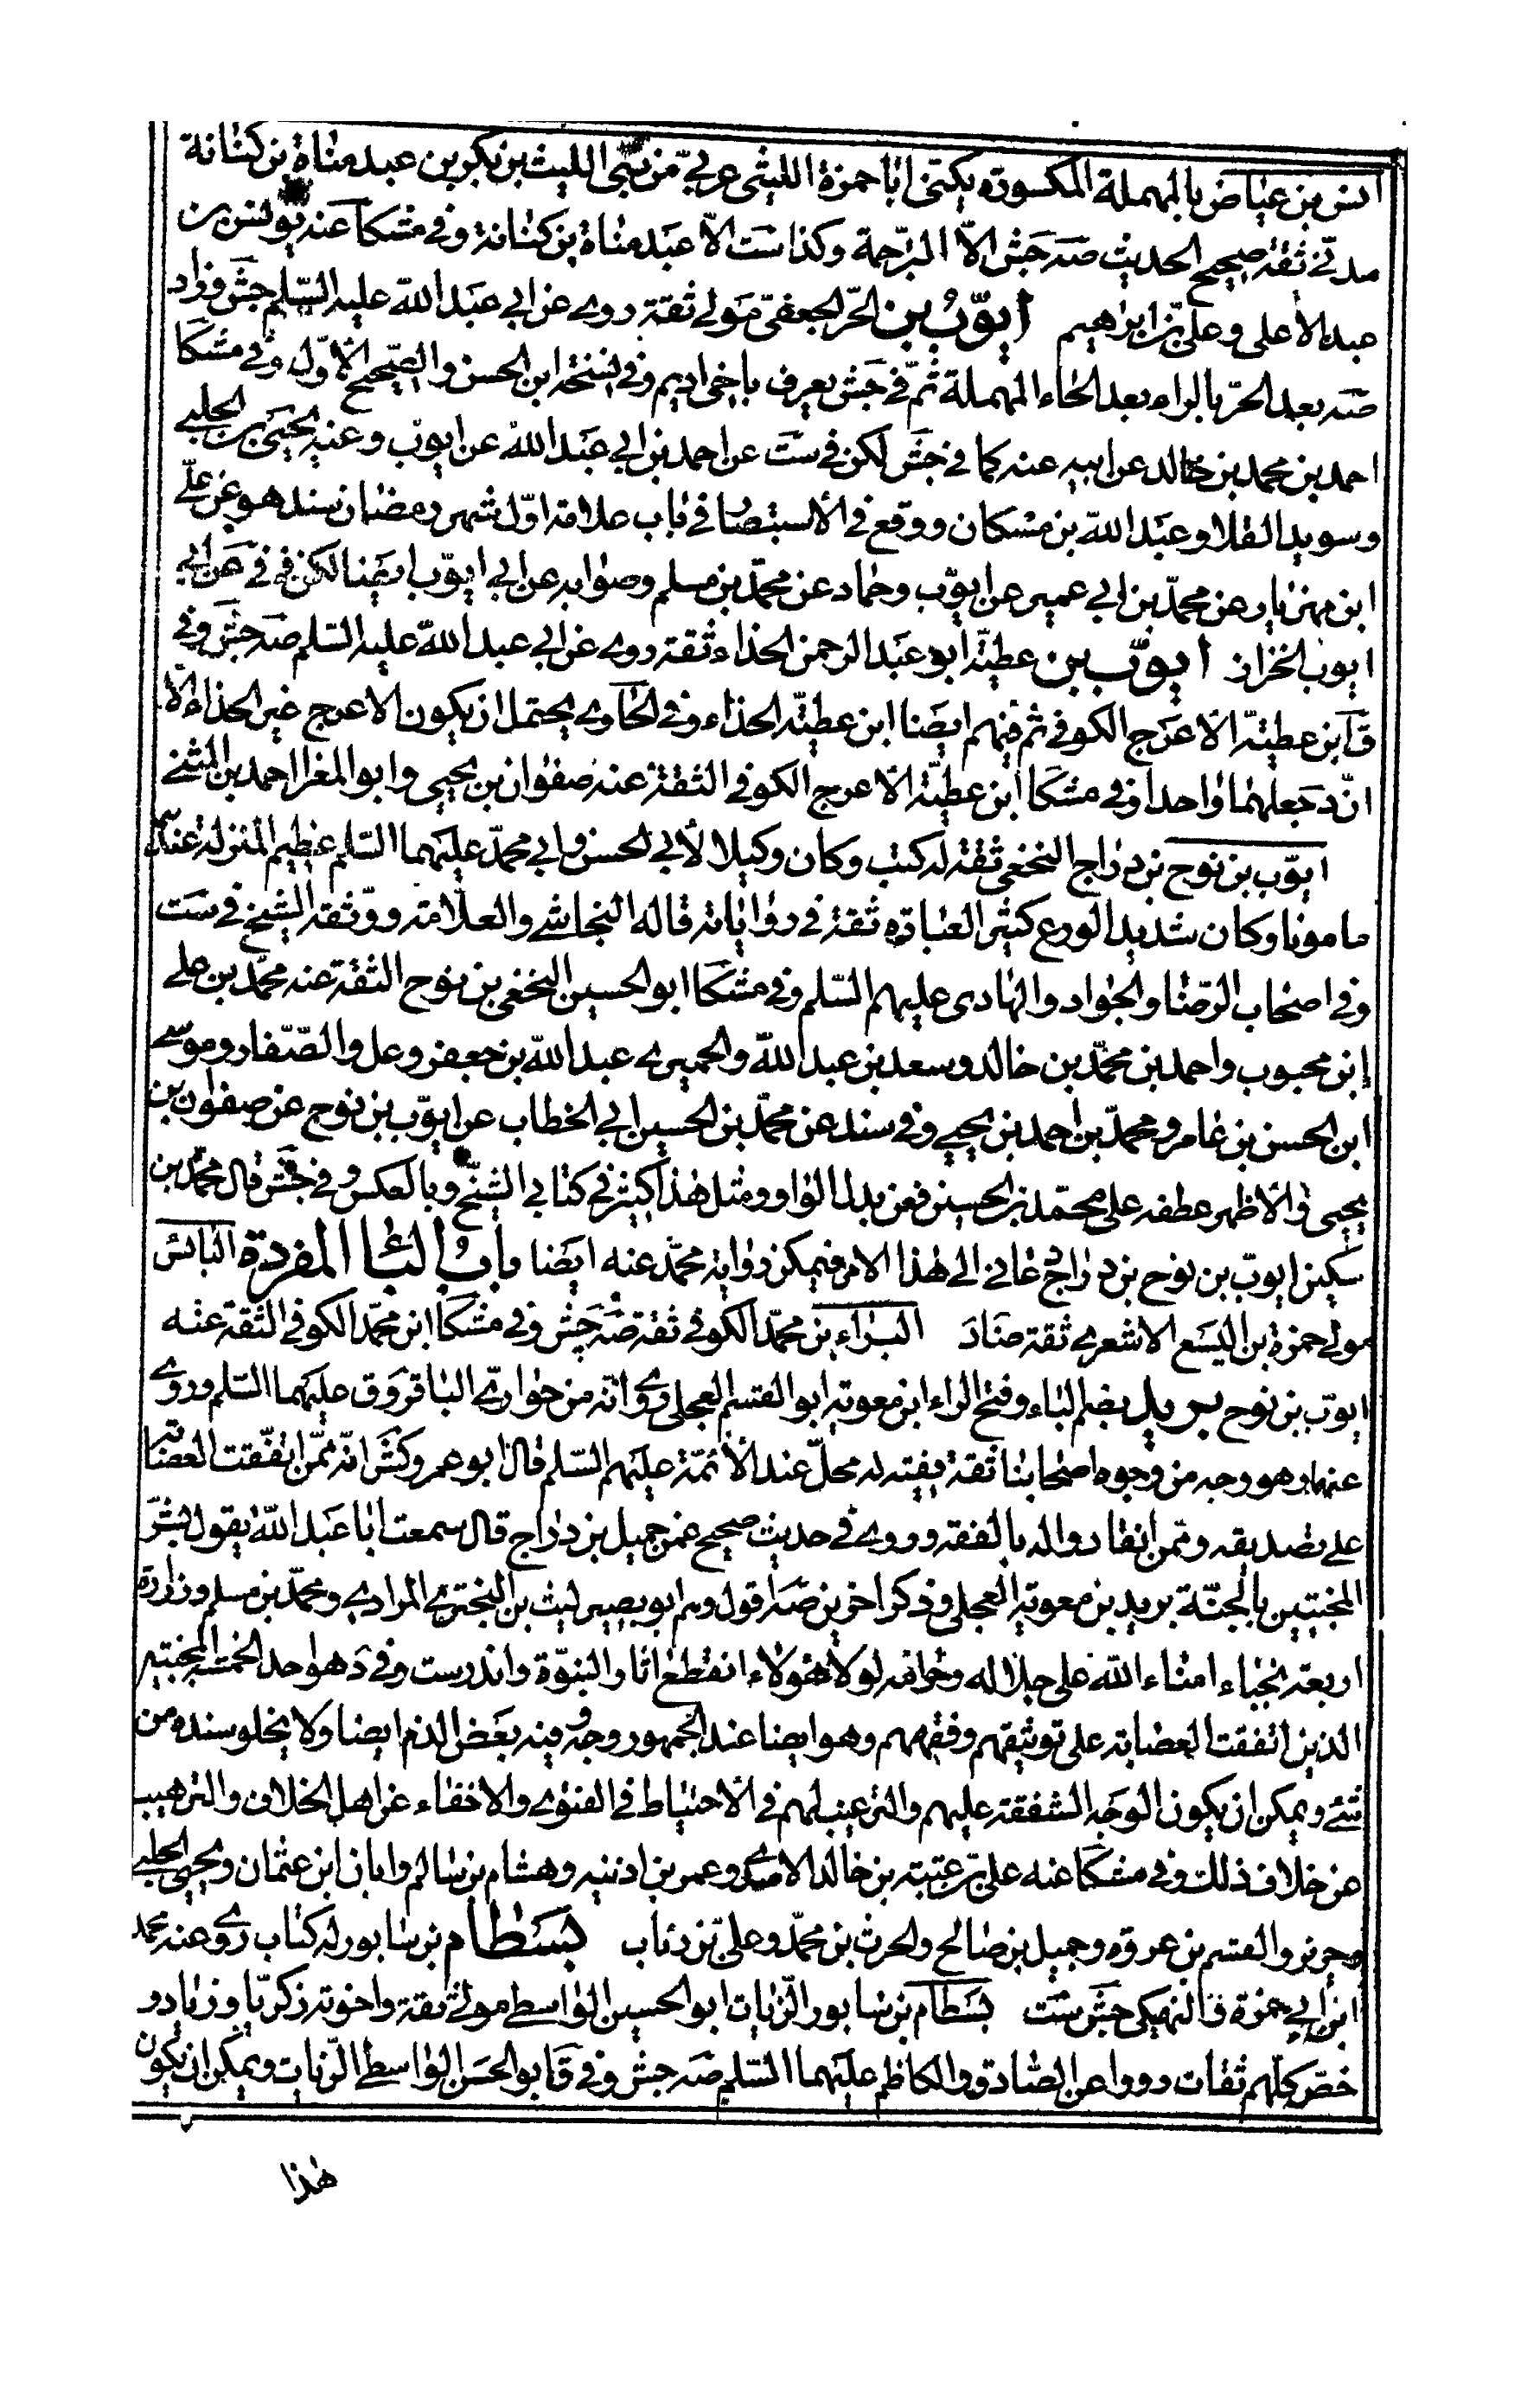 انس بن عياض بالمهملة المكسورة يكنى ابا حمزة الليثى عربىّ من بنى الليث بن بكر بن عبد مناة بن كنانة
مدنىّ ثقة صحيح الحديث صه جش الا المترجمة وكذا ست الاّ عبد مناة بن كنانة وفى مشكا عنه يونس بن
عبد الأعلى وعلى بن ابراهيم ايوّب بن الحرّ الجعفىّ مولى ثقة روى عن ابى عبد الله عليه السّلم جش وزاد
صه بعد الحرّ بالراء بعد الحاء المهملة ثمّ فى جش يعرف باخى اديم وفى نسخة ابن الحسن والصّحيح الأوّل وفى مشكا
احمد بن محمد بن خالد عن ابيه عنه كما فى جش لكن فى ست عن احمد بن ابى عبد الله عن ايوّب وعنه يحيى بن الحلبى
وسويد القلا وعبد الله بن مسكان ووقع فى الأستبصار فى باب علامة اوّل شهر رمضان سند هو عن علىّ
ابن مهزيار عن محمّد بن ابى عمير عن ايوّب وحماد عن محمّد بن مسلم وصوابه عن ابى ايوّب ايضا لكن فى عن ابى
ايوب الخزاز ايوّب بن عطيّة ابو عبد الرحمن الحذاء ثقة روى عن ابى عبد الله عليه السّلم صه جش وفى
ق ابن عطيّة الأعرج الكوفى ثم فيهم ايضا ابن عطيّة الحذاء وفى الحاوى يحتمل ان يكون الاعرج غير الحذاء الّا
انّ د جعلهما واحدا وفى مشكا ابن عطيّة الأعرج الكوفى الثقة عنه صفوان بن يحيى وابو المغرا احمد بن المثنى
ايوّب بن نوح بن درّاج النخعى ثقة له كتب وكان وكيلا لأبى الحسن وابى محمّد عليهما السّلم عظيم المنزلة عندهما
مامونا وكان شديد الورع كثير العبادة ثقة فى رواياته قاله النجاشى والعلّامة ووثقه الشيخ فى ست
وفى اصحاب الرّضا والجواد والهادى عليهم السّلم وفى مشكا ابو الحسين النخعى بن نوح الثقة عنه محمّد بن على
ابن محبوب واحمد بن محمّد بن خالد وسعد بن عبد الله والحميرى عبد الله بن جعفر وعل والصّفار وموسى
ابن الحسن بن عامر ومحمّد بن احمد بن يحيى وفى سند عن محمّد بن الحسين ابى الخطاب عن ايوّب بن نوح عن صفوان بن
يحيى والأظهر عطفه على محمّد بن الحسين فعن بدل الواو ومثل هذا كثير فى كتابى الشّيخ وبالعكس وفى جش قال محمّد بن
سكين ايوّب بن نوح بن درّاج عانى الى هذا الامر فيمكن رواية محمّد عنه ايضا باب البا المفردة البائس
مولى حمزة بن اليسع الاشعرى ثقة ضا د البراء بن محمّد الكوفى ثقة صه جش وفى مشكا ابن محمّد الكوفى الثقة عنه
ايوّب بن نوح بريد بضم الباء وفتح الراء ابن معوية ابو القسم العجلى روى انّه من حوارىّ الباقر وق عليهما السّلم وروى
عنهما وهو وجه من وجوه اصحابنا ثقة فقيه له محلّ عند الأئمّة عليهم السّلم قال ابو عمرو كش انّه ممّن اتّفقت العصابة
على تصديقه وممّن انقادوا له بالفقه وروى فى حديث صحيح عن جميل بن درّاج قال سمعت ابا عبد الله يقول بشّر
المخبتين بالجنّة بريد بن معوية العجلى وذكر اخرين صه اقول وهم ابو بصير ليث بن البخترى المرادى ومحمّد بن مسلم وزرارة
اربعة نجباء امناء الله على حلاله وحرامه لولا هؤلاء انقطع اثار النبوّة واندرست وفى د هو احد الخمسة المخبتين
الذين اتفقت العصابة على توثيقهم وفقههم وهو ايضا عند الجمهور وجه وفيه بعض الذم ايضا ولا يخلو سنده من
شئ ويمكن ان يكون الوجه الشفقة عليهم والترغيب لهم فى الأحتياط فى الفتوى والاخفاء عن اهل الخلاف والترهيب
عن خلاف ذلك وفى مشكا عنه علىّ بن عتبة بن خالد الاسدى وعمر بن اذنيه وهشام بن سالم وابان ابن عثمان ويحيى الحلبى
وحريز والقسم بن عروة وجميل بن صالح والحرث بن محمّد وعلىّ بن رئاب بسطام بن سابور له كتاب روى عنه محمد
ابن ابى حمزة ق النهيكى جش ست بسطام بن سابور الزّيات ابو الحسين الواسطى مولى ثقة واخوته زكريّا وزياد و
حفص كلّهم ثقات رووا عن الصّادق والكاظم عليهما السّلم صه جش وفى ق ابو الحسن الواسطى الزّيات ويمكن ان يكون
هذا